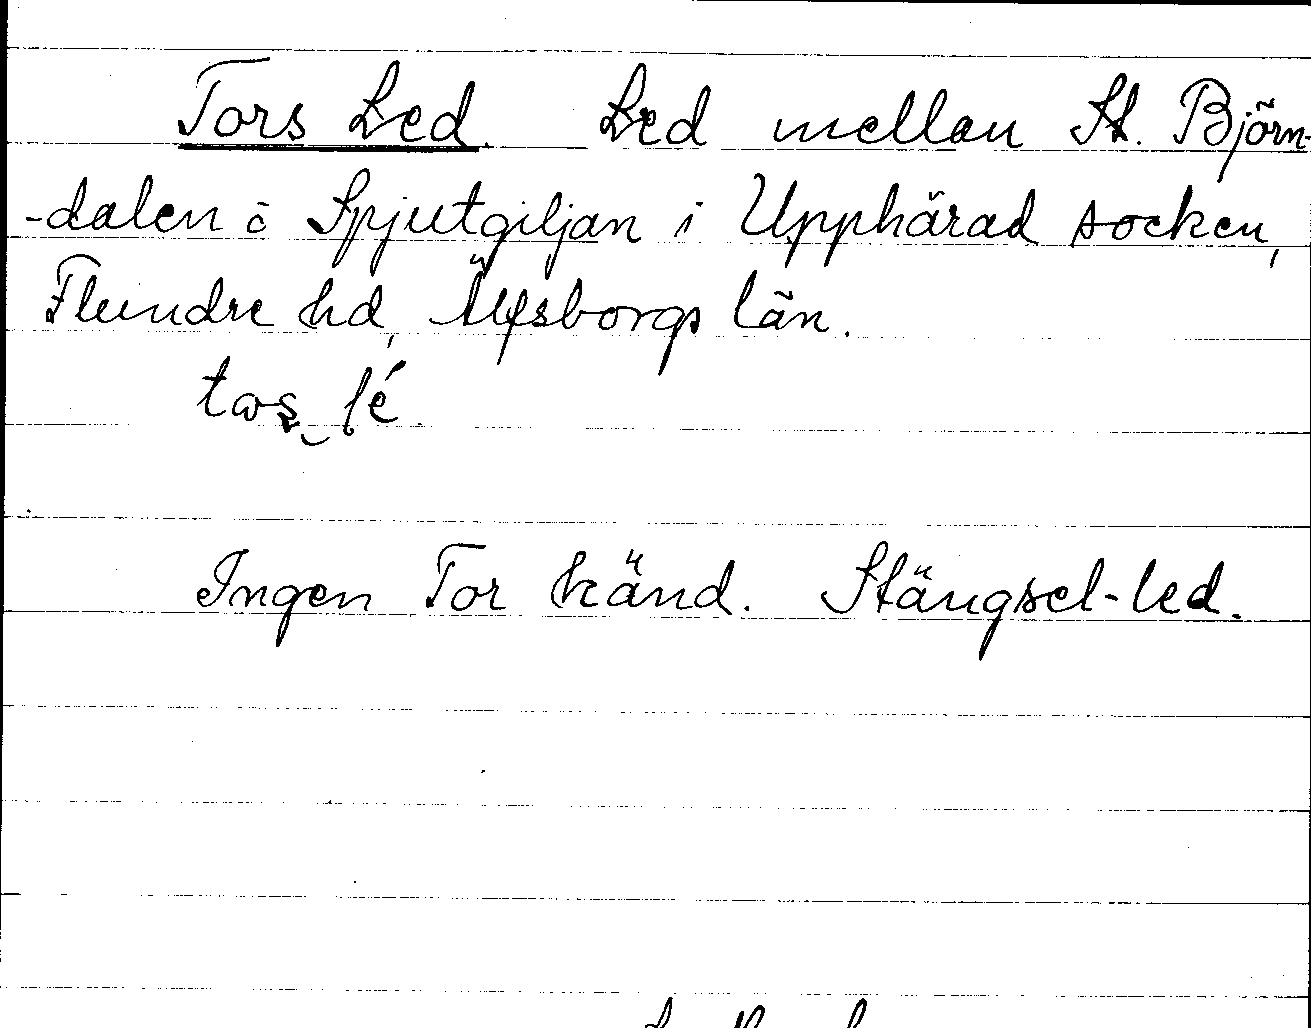 Tors Led. Led mellan St. Björn-
-dalen o Spjutgiljan i Upphärad socken,
Flundre hd, Älfsborgs län.
tɷs‿lé.
Ingen Tor känd. Stängsel-led.